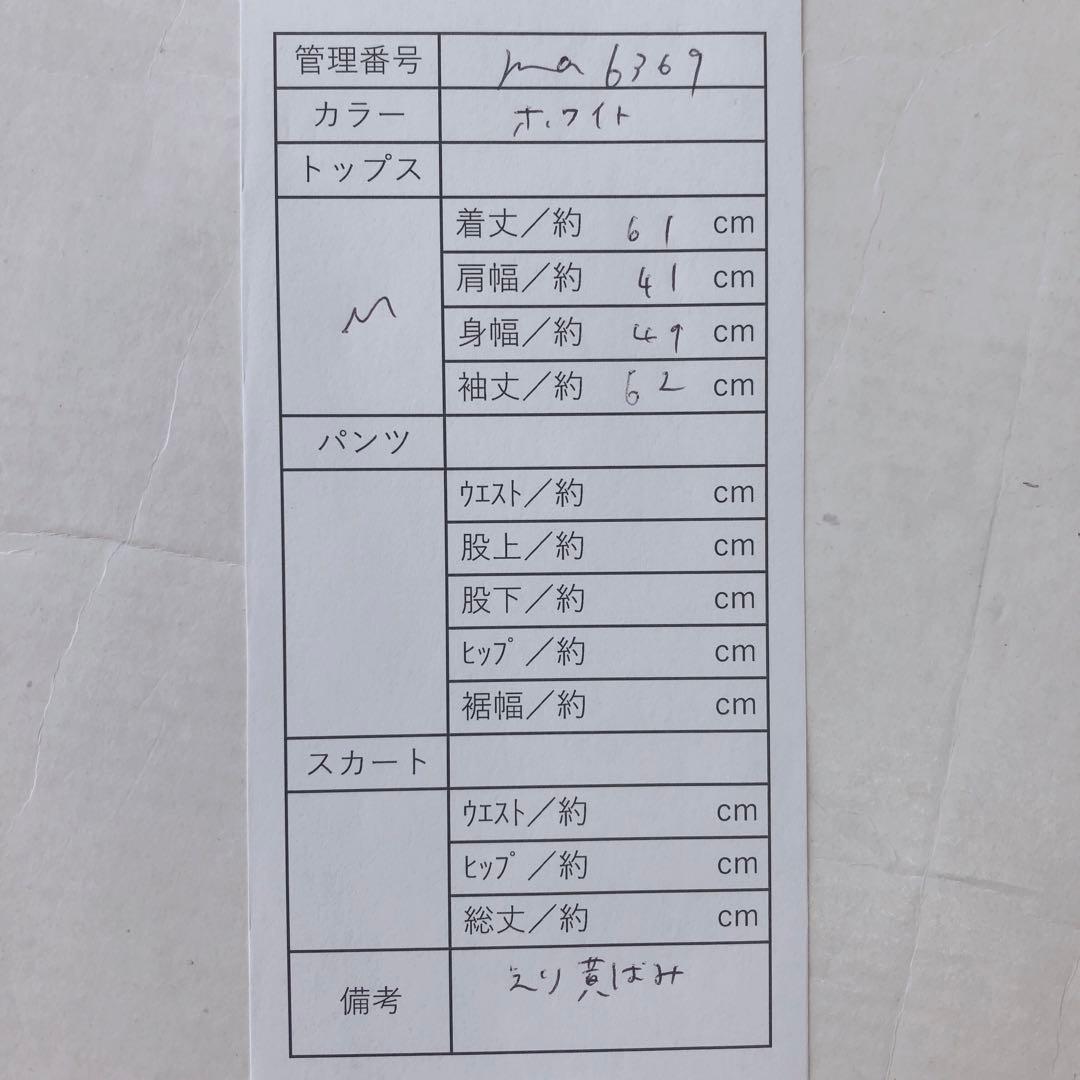 管理番号 ma6369
カラー ホワイト
トップス
M
着丈／約 61 cm
肩幅／約 41 cm
身幅／約 49 cm
袖丈／約 62 cm
パンツ
ｳｴｽﾄ／約 cm
股上／約 cm
股下／約 cm
ﾋｯﾌﾟ／約 cm
裾幅／約 cm
スカート
ｳｴｽﾄ／約 cm
ﾋｯﾌﾟ／約 cm
総丈／約 cm
備考 えり黄ばみ